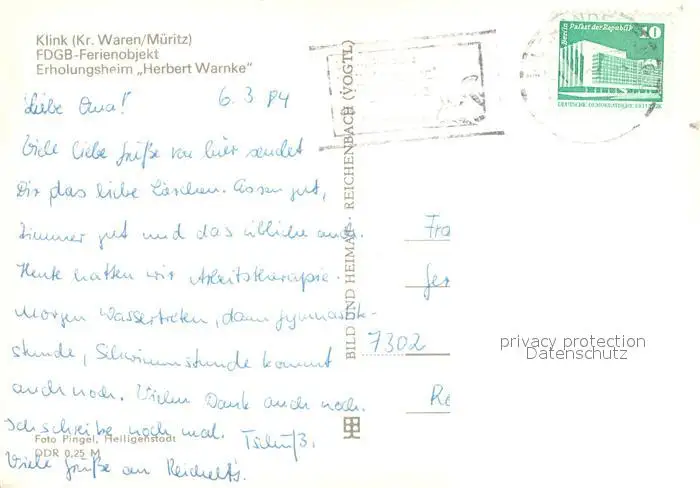 Klink (Kr. Waren/Müritz)
FDGB-Ferienobjekt
Erholungsheim „Herbert Warnke"
6. 3. 84
Liebe Oma!
Viele liebe Grüße von hier sendet
Dir das liebe Lieschen. Essen gut,
Zimmer gut und das übliche auch.
Heute hatten wir Arbeitstherapie.
Morgen Wassertreten, dann Gymnastik-
stunde, Schwimmstunde kommt
auch noch. Vielen Dank auch noch.
Ich schreibe noch mal. Tschüß.
Viele Grüße an Reichelt's.
Foto Pingel, Heiligenstadt
DDR 0,25 M
BILD UND HEIMAT · REICHENBACH (VOGTL)
Berlin Palast der Republik
10
DEUTSCHE DEMOKRATISCHE REPUBLIK
Fra
7302
privacy protection
Datenschutz